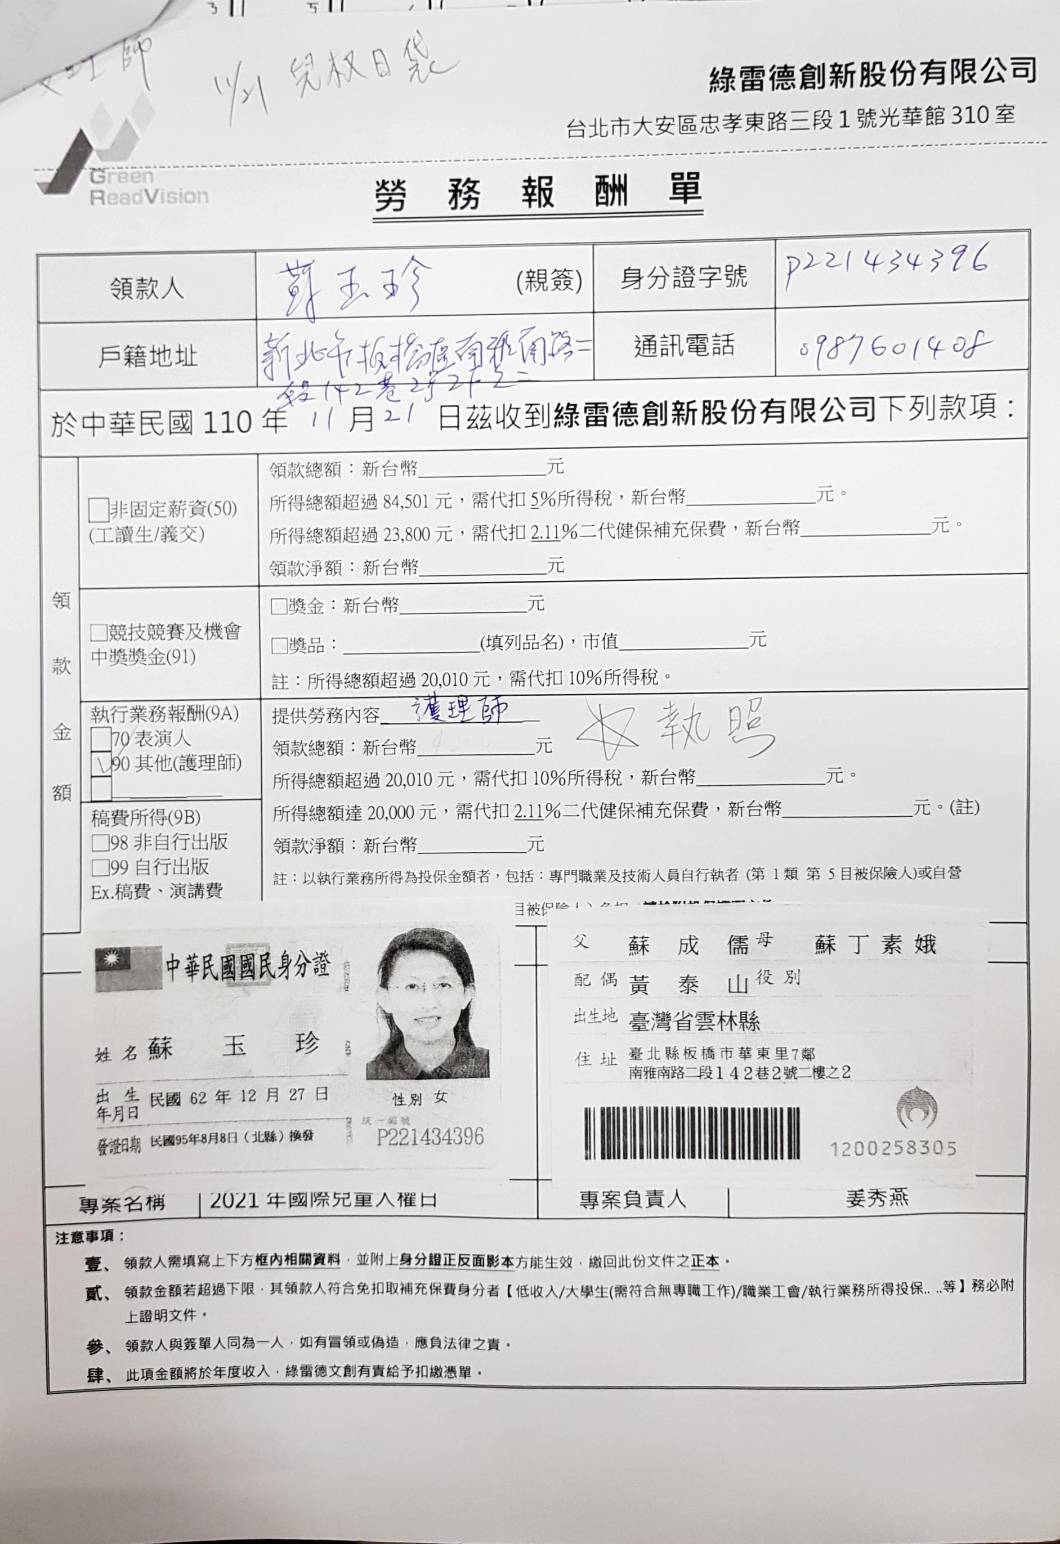 理師
11/21 兒權日袋
綠雷德創新股份有限公司
台北市大安區忠孝東路三段1號光華館310室
Green
ReadVision
勞務報酬單
領款人 蘇玉珍 (親簽) 身分證字號 P221434396
戶籍地址 新北市板橋區南雅南路二段142巷2号2F之二 通訊電話 0987601408
於中華民國 110 年 11 月 21 日茲收到綠雷德創新股份有限公司下列款項：
領款金額
□非固定薪資(50)
(工讀生/義交)
領款總額：新台幣____________元
所得總額超過 84,501 元，需代扣 5%所得稅，新台幣____________元。
所得總額超過 23,800 元，需代扣 2.11%二代健保補充保費，新台幣____________元。
領款淨額：新台幣____________元
□競技競賽及機會
中獎獎金(91)
□獎金：新台幣____________元
□獎品：____________(填列品名)，市值____________元
註：所得總額超過 20,010 元，需代扣 10%所得稅。
執行業務報酬(9A)
□70 表演人
☑90 其他(護理師)
□__________
稿費所得(9B)
□98 非自行出版
□99 自行出版
Ex.稿費、演講費
提供勞務內容 護理師
☆執照
領款總額：新台幣____________元
所得總額超過 20,010 元，需代扣 10%所得稅，新台幣____________元。
所得總額達 20,000 元，需代扣 2.11%二代健保補充保費，新台幣____________元。(註)
領款淨額：新台幣____________元
註：以執行業務所得為投保金額者，包括：專門職業及技術人員自行執者 (第 1 類 第 5 目被保險人)或自營
中華民國國民身分證
姓名 蘇玉珍
出生年月日 民國 62 年 12 月 27 日
性別 女
發證日期 民國95年8月8日（北縣）換發
統一編號
P221434396
父 蘇成儒 母 蘇丁素娥
配偶 黃泰山 役別
出生地 臺灣省雲林縣
住址 臺北縣板橋市華東里7鄰
南雅南路二段142巷2號二樓之2
1200258305
專案名稱 2021 年國際兒童人權日 專案負責人 姜秀燕
注意事項：
壹、領款人需填寫上下方框內相關資料，並附上身分證正反面影本方能生效，繳回此份文件之正本。
貳、領款金額若超過下限，其領款人符合免扣取補充保費身分者【低收入/大學生(需符合無專職工作)/職業工會/執行業務所得投保.. ..等】務必附
上證明文件。
參、領款人與簽單人同為一人，如有冒領或偽造，應負法律之責。
肆、此項金額將於年度收入，綠雷德文創有責給予扣繳憑單。